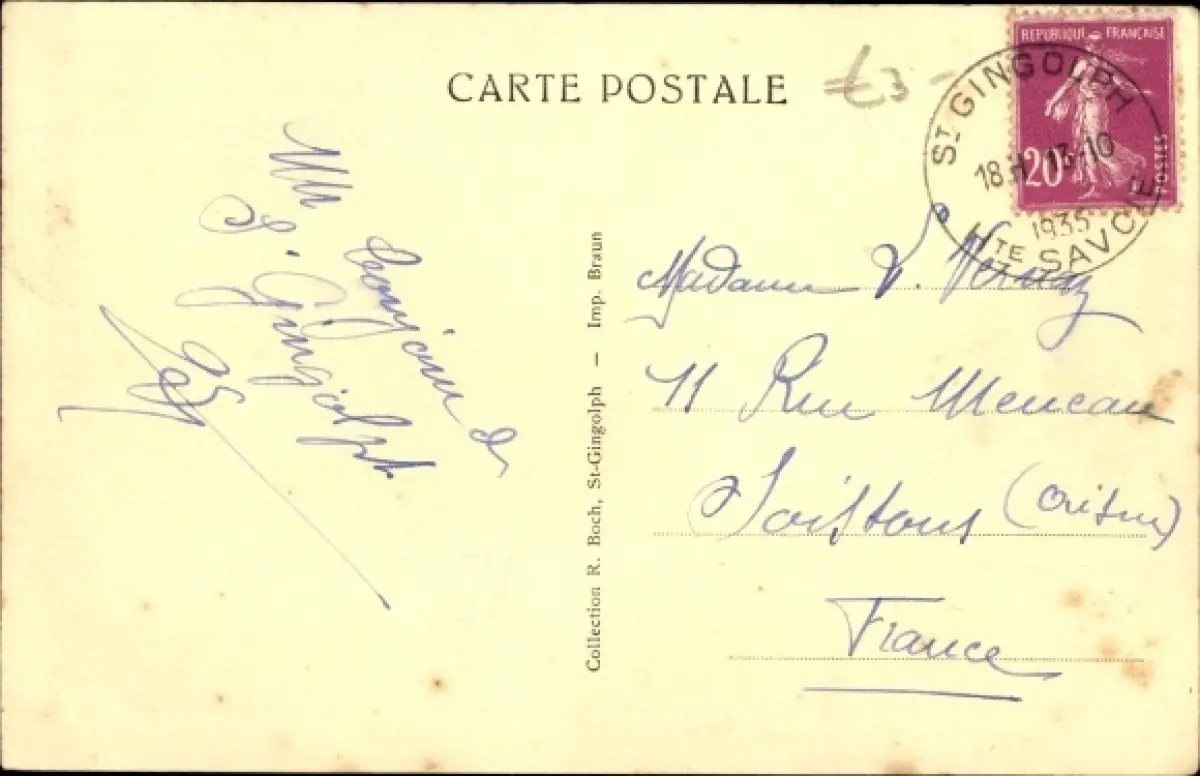 CARTE POSTALE
£3-
REPUBLIQUE FRANÇAISE
20c
POSTES
ST GINGOLPH
18H 13-10
1935
HTE SAVOIE
Un
bonjour de
S. Gingolph
Madame V. Vernaz
11 Rue
Soissons (Aisne)
France
Collection R. Boch, St-Gingolph — Imp. Braun